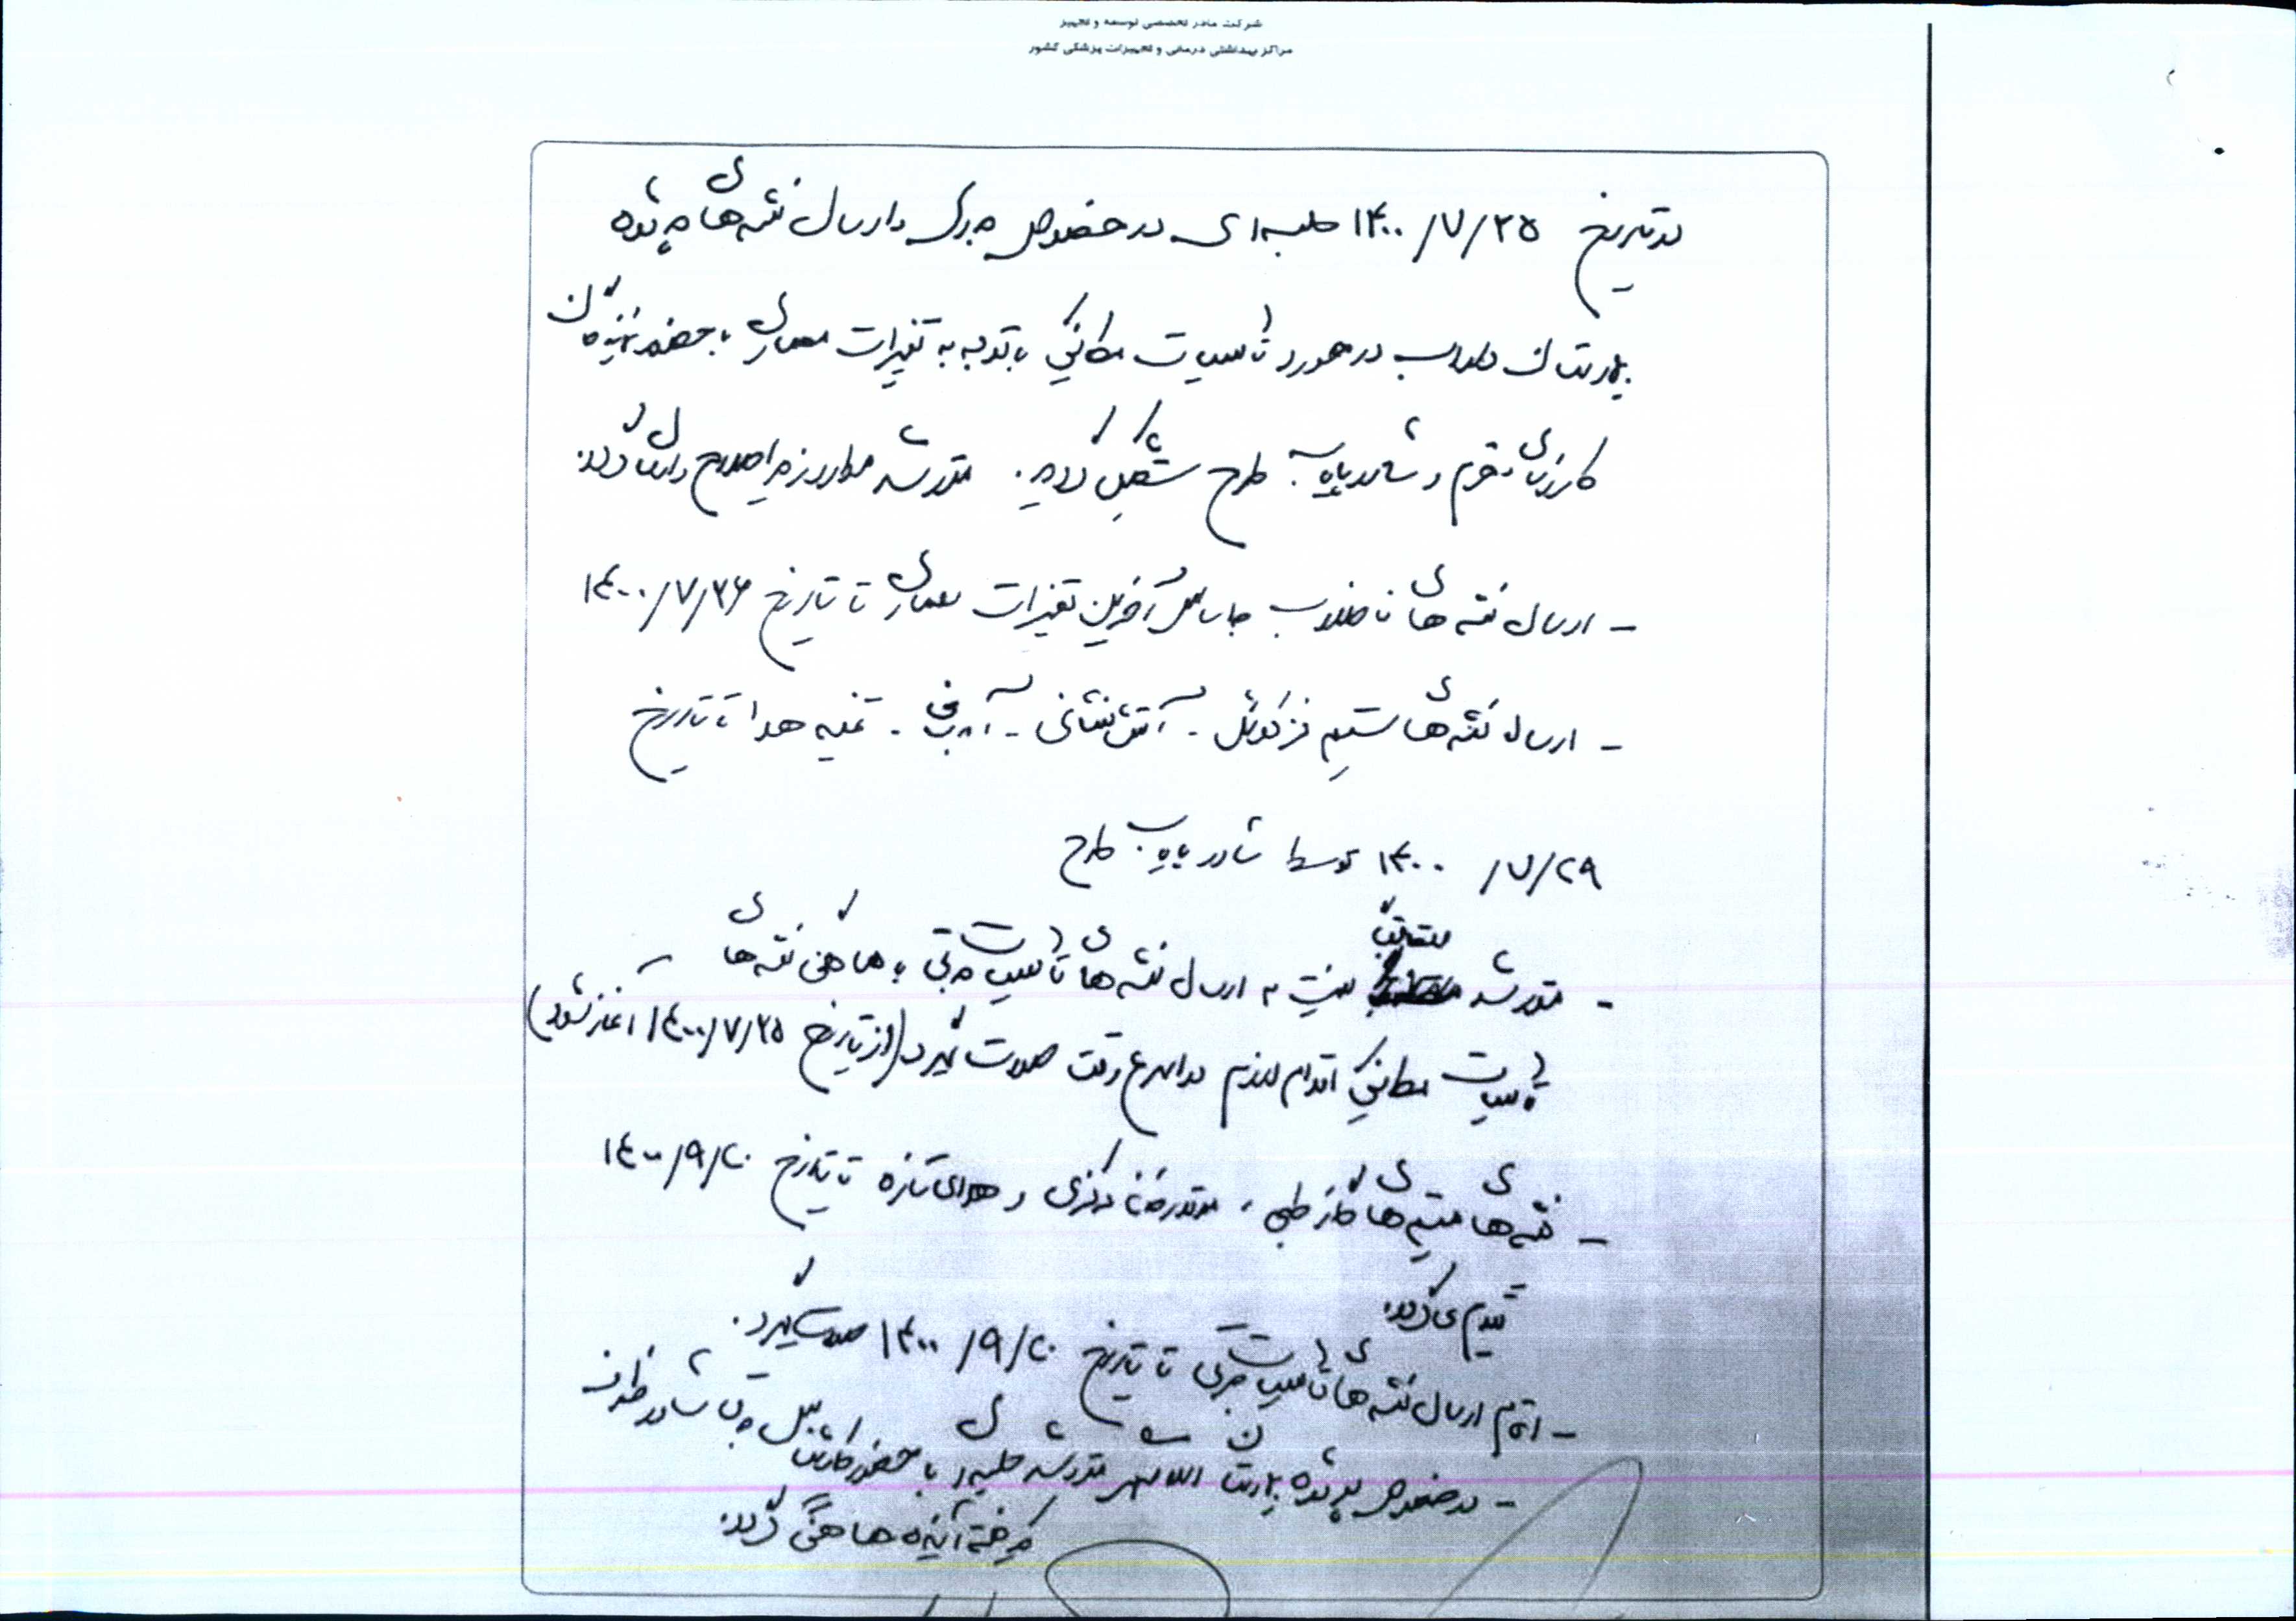 شرکت مادر تخصصی توسعه و تجهیز
مراکز بهداشتی درمانی و تجهیزات پزشکی کشور
در تاریخ ۱۴۰۰/۷/۲۵ جلسه ای در خصوص و ارسال نقشه های پروژه
بیمارستان در مورد تاسیسات مکانیکی با توجه به تغییرات معماری با حضور نمایندگان
کارفرمای محترم و مشاور پایه طرح تشکیل گردید. مقرر شد موارد زیر اصلاح و ارسال گردد.
- ارسال نقشه های فاضلاب براساس آخرین تغییرات معماری تا تاریخ ۱۴۰۰/۷/۲۶
- ارسال نقشه های سیستم فن کویل - آتش نشانی - آبرسانی - تخلیه هوا تا تاریخ
۱۴۰۰/۷/۲۹ توسط مشاور پایه طرح
- مقرر شد متعاقباً نسبت به ارسال نقشه های تاسیسات برقی با هماهنگی نقشه های
تاسیسات مکانیکی اقدام لازم در اسرع وقت صورت گیرد (از تاریخ ۱۴۰۰/۷/۲۵ آغاز شود)
- نقشه های سیستم های گاز طبی ، موتورخانه مرکزی و هوای تازه تا تاریخ ۱۴۰۰/۹/۲۰
تقدیم می گردد.
- اتمام ارسال نقشه های تاسیسات برقی تا تاریخ ۱۴۰۰/۹/۲۰ صورت گیرد.
- در خصوص پروژه بیمارستان مقرر شد جلسه ای با حضور مشاور
در هفته آینده هماهنگ گردد.